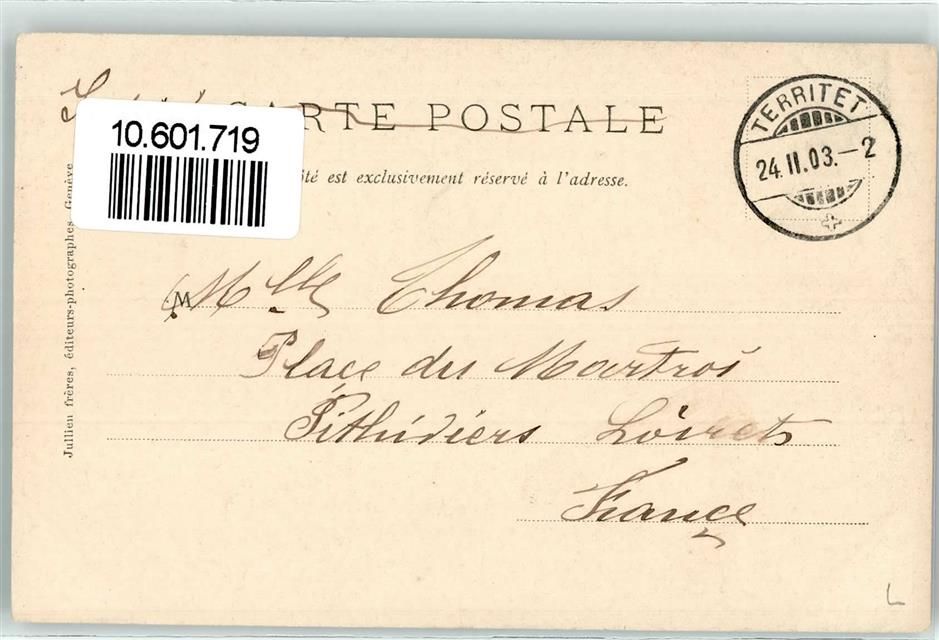 10.601.719
CARTE POSTALE
té est exclusivement réservé à l'adresse.
TERRITET
24.II.03.-2
Jullien frères, éditeurs-photographes, Genève
M Mlle Thomas
Place du Martroi
Pithiviers Loiret
France
L